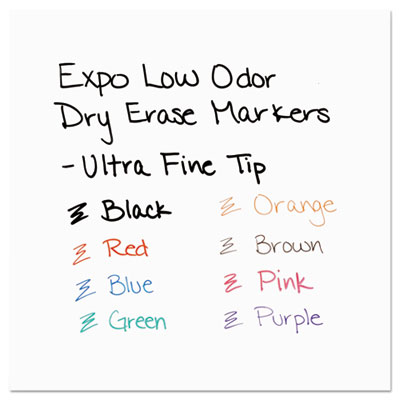 Expo Low Odor
Dry Erase Markers
- Ultra Fine Tip
Black
Red
Blue
Green
Orange
Brown
Pink
Purple